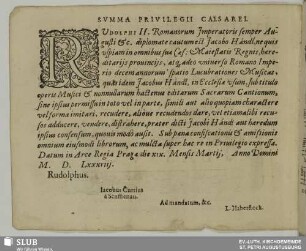 SVMMA PRIVILEGII CAESAREI.
RVDOLPHI II. Romanorum Imperatoris semper Au-
gusti &c. diplomate cautum est Iacobo Händl, ne quis
vspiam in omnibus suæ Cæs: Maiestatis Regnis, here-
ditarijs prouincijs, atq; adeo vniuerso Romano Impe-
rio decem annorum spatio Lucubrationes Musicas,
quas idem Iacobus Händl, in Ecclesiæ vsum, sub titulo
operis Musici & nonnullarum hactenus editarum Sacrarum Cantionum,
siue ipsius permissu in toto vel in parte, simili aut alio quopiam charactere
vel forma imitari, recudere, aliove recudendas dare, vel etiam alibi recu-
sos adducere, vendere, distrahere, præter dicti Iacobi Händl aut heredum
ipsius consensum, quouis modo ausit. Sub pena confiscationis & amissionis
omnium eiusmodi librorum, ac multa super hac re in Priuilegio expressa.
Datum in Arce Regia Pragæ die XIX. Mensis Martij, Anno Domini
M. D. LXXXVIIJ.
Rudolphus.
Iacobus Curtius
à Senfftenau.
Ad mandatum, &c.
I. Haberstock.
SLUB
Wir führen Wissen.
EV.-LUTH. KIRCHGEMEINDE
ST. PETRI AUGUSTUSBURG